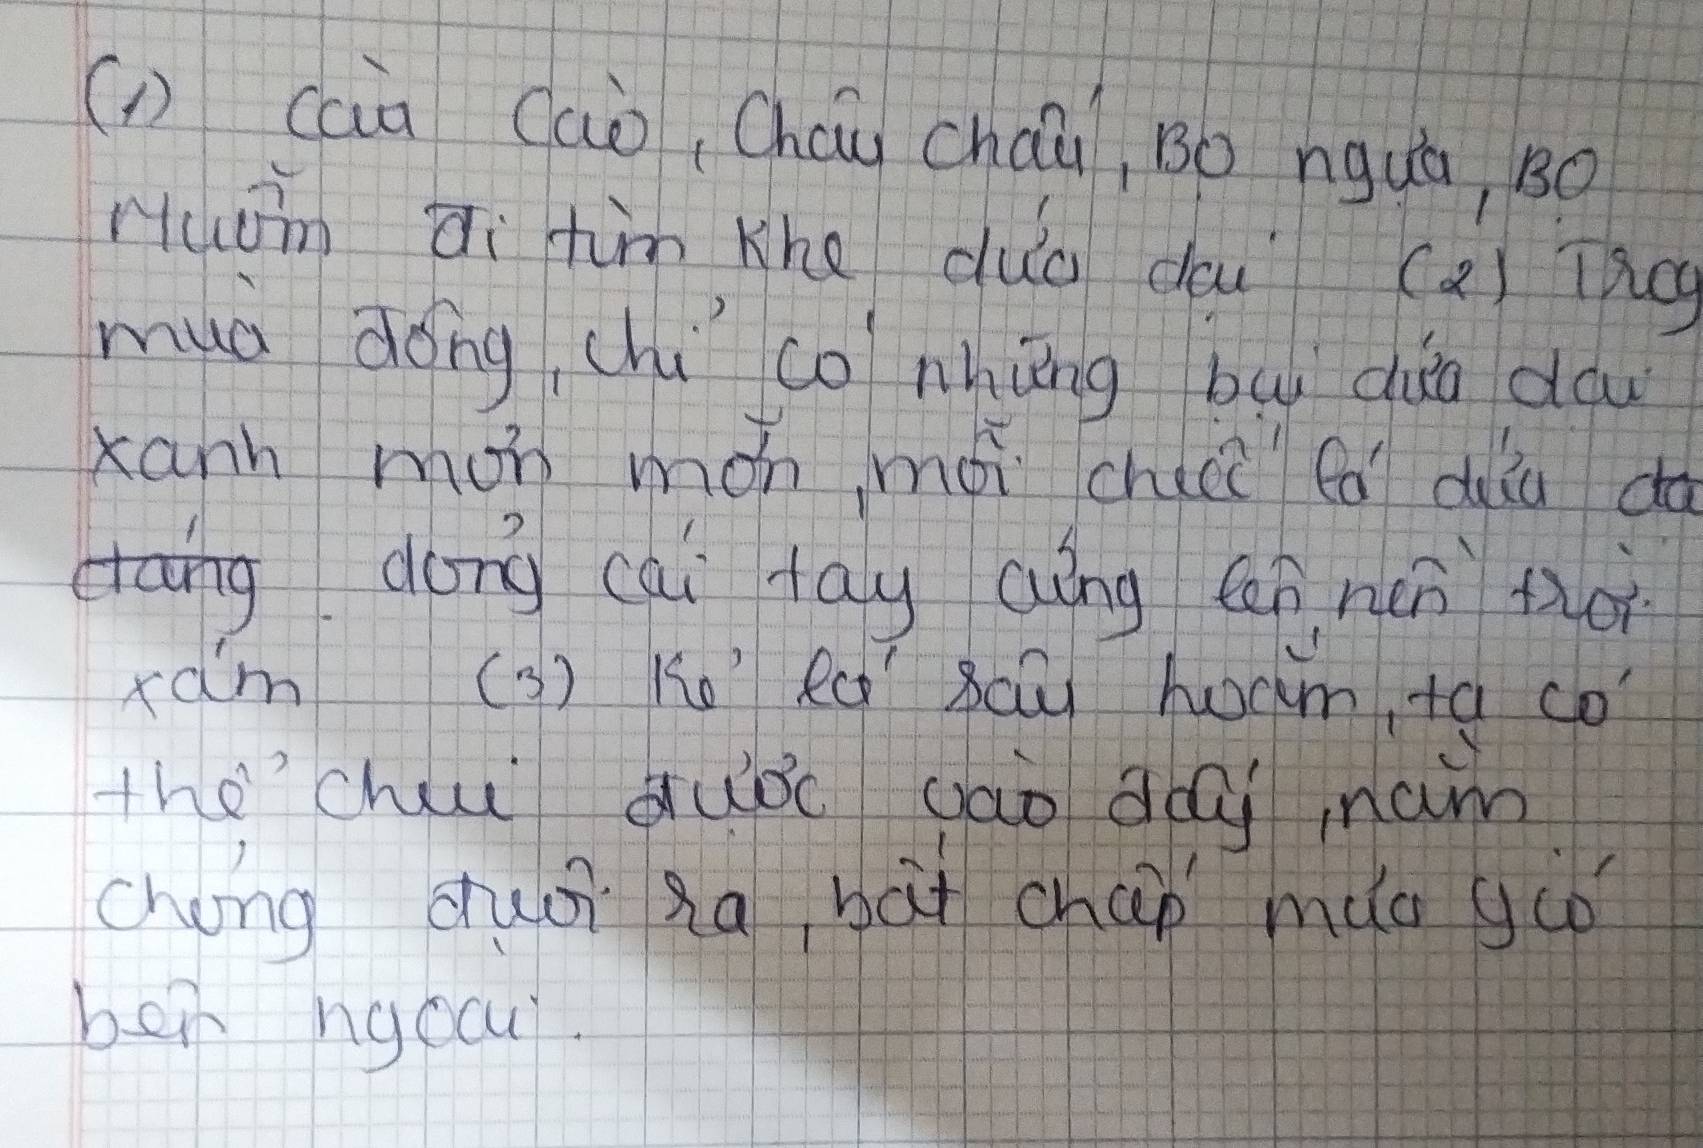 (1) Cào Cào, Châu chấu, Bọ ngựa, Bọ
Muỗm đi tìm khe dứa dại (2) Trog
mùa đông, chỉ có những bụi dứa dại
xanh mơn mởn, mỗi chiếc lá dứa dà
dong cái tay cứng lên nền trời
xám (3) Kẻ lá sâu hoắm, ta có
thể chui được vào đấy, nằm
chổng đuôi ra, bất chấp mưa gió
bên ngoài.